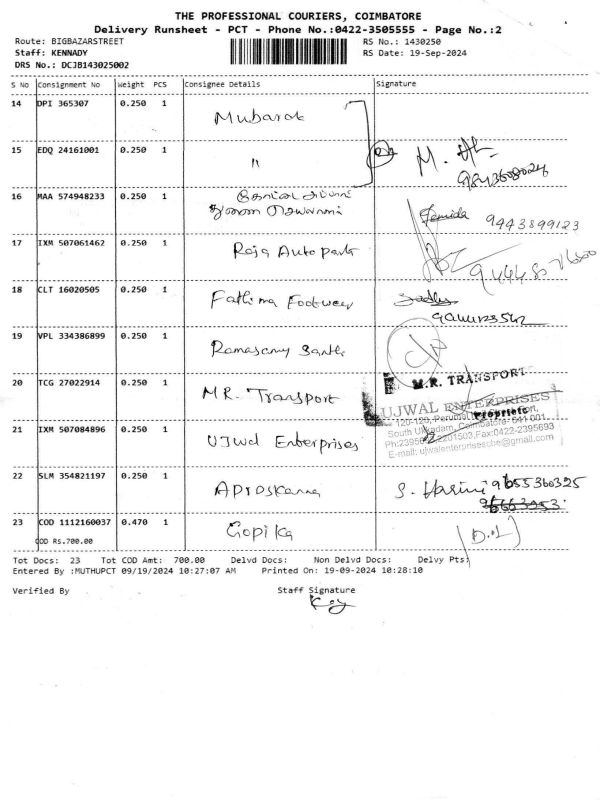 THE PROFESSIONAL COURIERS, COIMBATORE
Delivery Runsheet - PCT - Phone No.:0422-3505555 - Page No.:2
Route: BIGBAZARSTREET RS No.: 1430250
Staff: KENNADY RS Date: 19-Sep-2024
DRS No.: DCJB143025002
S No Consignment No Weight PCS Consignee Details Signature
14 DPI 365307 0.250 1 Mubarak
15 EDQ 24161001 0.250 1 "
16 MAA 574948233 0.250 1
9443899123
17 IXM 507061462 0.250 1 Raja Auto Park
18 CLT 16020505 0.250 1 Fathima Footwear
19 VPL 334386899 0.250 1 Ramasamy
20 TCG 27022914 0.250 1 M.R. Transport
M.R. TRANSPORT
21 IXM 507084896 0.250 1 UJwal Enterprises
UJWAL ENTERPRISES
Proprieto
South Ukkadam, Coimbatore- 641 001.
Fax:0422-2395693
E-mail: ujwalenterprisescbe@gmail.com
22 SLM 354821197 0.250 1
S. Harini 9655360325
23 COD 1112160037 0.470 1 Gopika
COD Rs.700.00
Tot Docs: 23 Tot COD Amt: 700.00 Delvd Docs: Non Delvd Docs: Delvy Pts:
Entered By :MUTHUPCT 09/19/2024 10:27:07 AM Printed On: 19-09-2024 10:28:10
Verified By Staff Signature